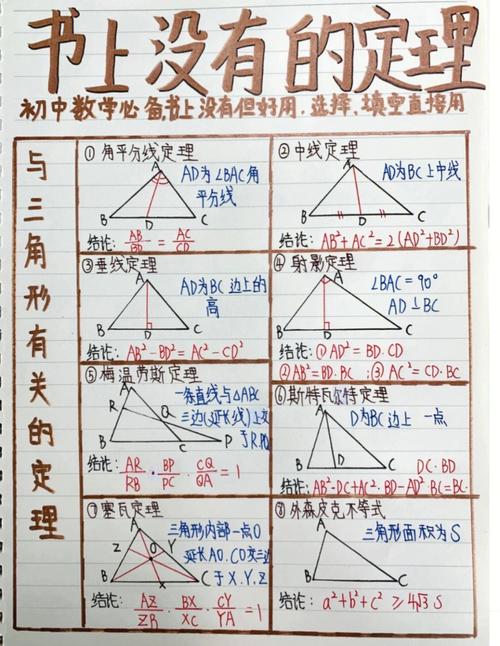 书上没有的定理
初中数学必备,书上没有但好用.选择、填空直接用
与三角形有关的定理
① 角平分线定理
AD为∠BAC角
平分线
A
B
D
C
结论: AB/BD = AC/CD
② 中线定理
AD为BC上中线
A
B
D
C
结论: AB²+AC²=2(AD²+BD²)
③垂线定理
AD为BC边上的
高
A
B
D
C
结论: AB²-BD²=AC²-CD²
④ 射影定理
∠BAC=90°
AD⊥BC
A
B
D
C
结论:①AD²=BD·CD
②AB²=BD·BC ;③AC²=CD·BC
⑤梅涅劳斯定理
一条直线与△ABC
三边(延长线)上交
于R.P.Q
A
R
Q
B
C
P
结论: AR/RB · BP/PC · CQ/QA = 1
⑥斯特瓦尔特定理
D为BC边上 一点
A
B
D
C
DC·BD
结论:AB²·DC+AC²·BD-AD²·BC=BC·
⑦塞瓦定理
三角形内部一点O
延长AO.CO交三边
于X.Y.Z
A
Z
O
Y
B
X
C
结论: AZ/ZB · BX/XC · CY/YA =1
⑧外森皮克不等式
三角形面积为S
A
B
C
结论: a²+b²+c² ≥4√3 S